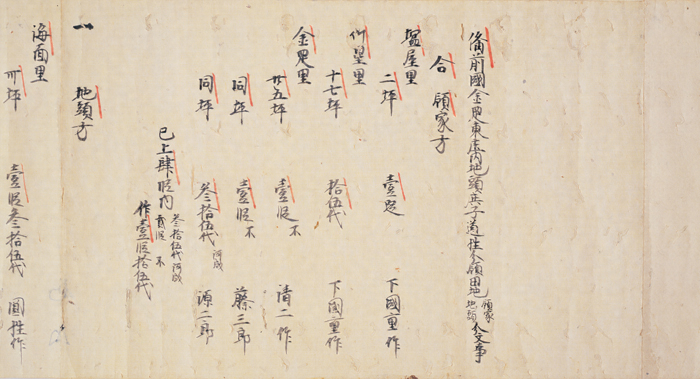 備前國金岡東庄内地頭 道性分領田地 領家 地頭 分文事
合 領家方
塩屋里
二坪 壹段 下國重作
里
十七坪 拾伍代 下國重作
金岡里
廿五坪 壹段 不 清二作
同坪 壹段 不 藤三郎
同坪 叁拾伍代 河成 源二郎
已上肆段内 叁拾伍代河成
貳段 不
作壹段拾伍代
一 地頭方
海面里
卅坪 壹段叁拾伍代 圓性作